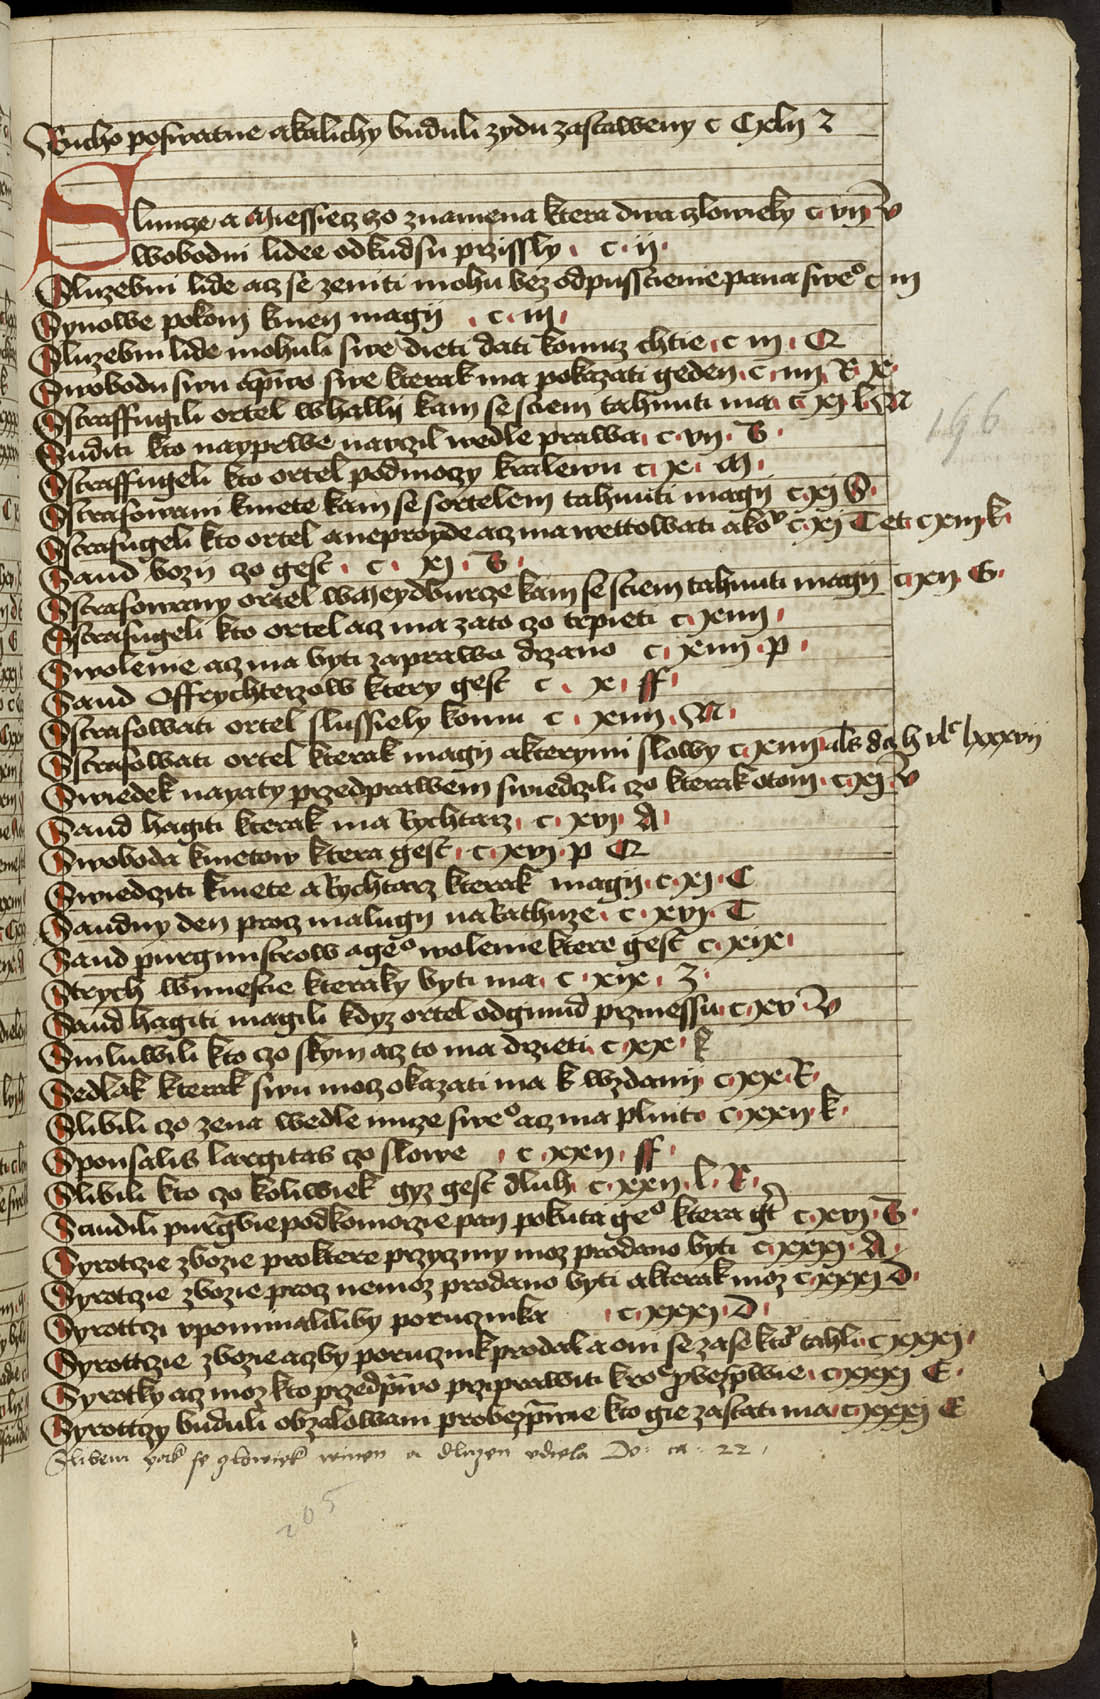 Rucho poswatne akalichy buduli zydu zastaweny c Cxlij z
Slunze a Miessiecz czo znamena ktera dwa czlowieky c vij v
Swobodni lidee odkudsu przissly c ij
Sluzebni lide acz se zeniti mohu bez odpusstienie pana sweº c iij
Synowe pokom kmen magij c iij
Sluzebni lide mohuli swe dieti dati komuz chtie c iij Q
Swobodu swu a pwo swe kterak ma pokazati geden c iiij R x
Straffugili ortel whallij kam se stiem tahnuti ma c xi l M
Suditi kto nayprwe narzil wedle prawa c vij B
Straffugeli kto ortel podmoczy kralewu c x M
Strasowani kmete kam se sortelem tahnuti magij c xi S
Strasugeli kto ortel aneproyde acz ma wettowati akoº c xi T et c xiiij k
Saud bozy czo gest c xi B
Strasowany ortel wMeydburcze kam se stiem tahnuti magij c xij G
Strasugeli kto ortel acz ma zato czo trpieti c xiiij
Swolenie acz ma byti zaprawo drzano c xiiij p
Saud Offrychterzow ktery gest c x ff
Strasowati ortel slussiely komu c xiiij M
Strasowati ortel kterak magij akterymi slowy c xiiij als da h vlc lxxxvij
Swiedek nayaty przedprawem swiedczili czo kterak otom c xi v
Saud hagiti kterak ma Rychtarz c xvi A
Swoboda kmetow ktera gest c xvi p Q
Swiedcziti kmete a Rychtarz kterak magij c xi C
Saudny den procz malugij na Rathuze c xvi T
Saud purgmistrow ageº wolenie ktere gest c xix
Strych wmiestie kteraky byti ma c xix 3
Saud hagiti magili kdyz ortel odginud prziniessu c xv v
Smluwili kto czo skym acz to ma drzieti c xx k
Sedlak kterak swu mocz okazati ma k wzdanij c xx R
Slibili czo zena wedle muze sweº acz ma plniti c xxij k
Sponsalis largitas czo slowe c xxij ff
Slibili kto czo koliwiek gyz gest dluh c xxij l R
Saudili purgbie podkomorzie pan pokuta geº ktera gt c xvi B
Syrotczie zbozie proktere przycziny moz prodano byti c xxxi A
Syrotczie zbozie procz nemoz prodano byti akterak moz c xxxi D
Syrottczi vpominaliliby porucznika c xxxi D
Syrottczie zbozie aczby porucznik prodal a oni se zase ktoº tahli c xxxi
Syrotky acz moz kto przed pwo przprawiti kroº pbezpwie c xxxi E
Syrottczy buduli obzalowani probezpwie kto gie zastati ma c xxxi E
Slibem yak se czlowiek winen a dluzen vdiela Do: ca: 22
196
205